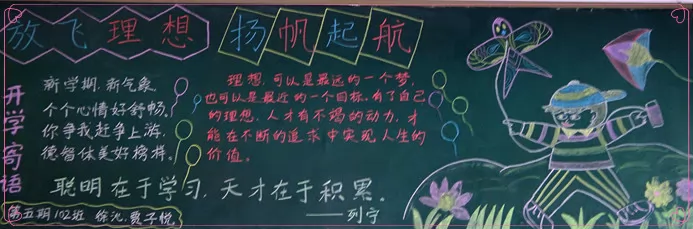 放飞理想 扬帆起航
开学寄语
新学期,新气象。
个个心情好舒畅。
你争我赶争上游,
德智体美好榜样。
理想,可以是最远的一个梦,
也可以是最近的一个目标,有了自己
的理想,人才有不竭的动力,才
能在不断的追求中实现人生的
价值。
聪明在于学习,天才在于积累。
——列宁
第五期102班 徐沁 贾子悦